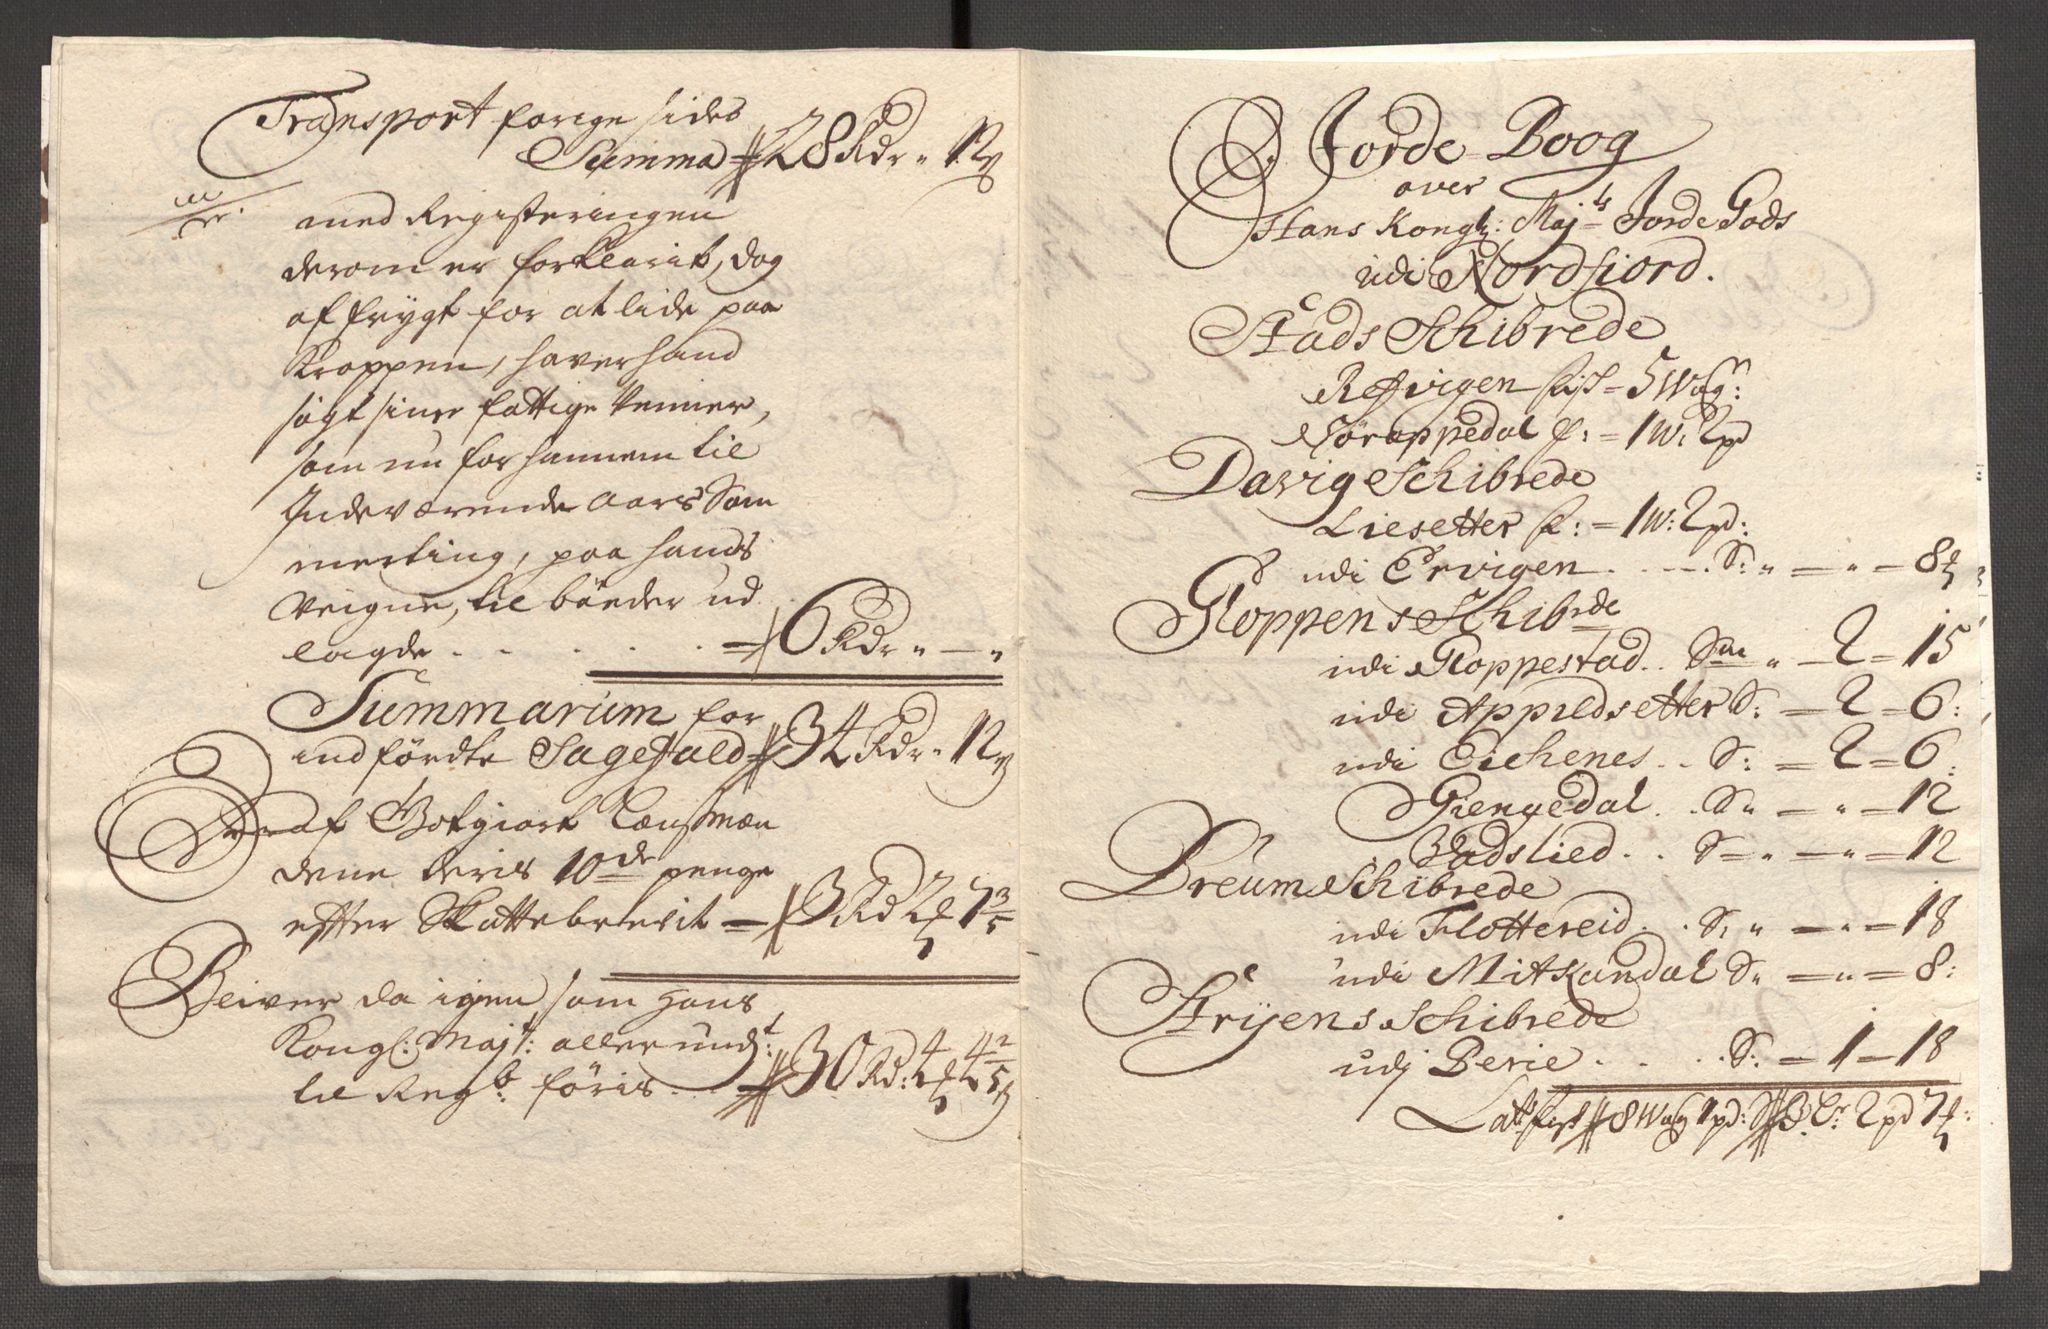 Transport forige sides
Summa 28 Rdr "
med Registeringen
derom er forklarit, dog
af frygt for at lide paa
Kroppen, haver hand
søgt sine fattige Venner,
som nu for hannem til
Indeværende Aars Som
merting, paa hands
Veigne, til bønder ud
lagde . . . . . 6 Rdr " — "
Summarum for
indførdte Sagefald 34 Rdr "
Deraf Godgiort Lænsmæn
dene deris 10de penge
effter Skattebrevit = 3 Rd 2 7 3/5
Bliver da igien som Hans
Kongl: Majt: allerundt:
til Regb: føris . . 30 Rd: 4 4 2/5
Jorde Boog
over
Hans Kongl: Majts Jorde Gods
udi Nordfiord.
Stads Schibrede
Refvigen fisk = 5 Wog:
Nøroppedal f: = 1 W: 2 pd
Davig Schibrede
Liesetter f: = 1 W: 2 pd:
udi Ervigen . . — . S: " — " — 8
Gloppens Schibrde
udi Gloppestad . . " — 2 = 15
udi Appildsetter S: = 2 = 6:
udi Eichenes . . S: = 2 = 6:
Giengedal . . S " — " — 12
Vadslied . . S — " — " — 12
Dreum Schibrede
udi Flottereid . . S, " — " — 18
udi Mitkandal S " — " — 8:
Strijens Schibrede
udj Berie . . . . S: — 1 — 18
Latts fisk 8 Wog 1 pd: S 3 2 pd 7